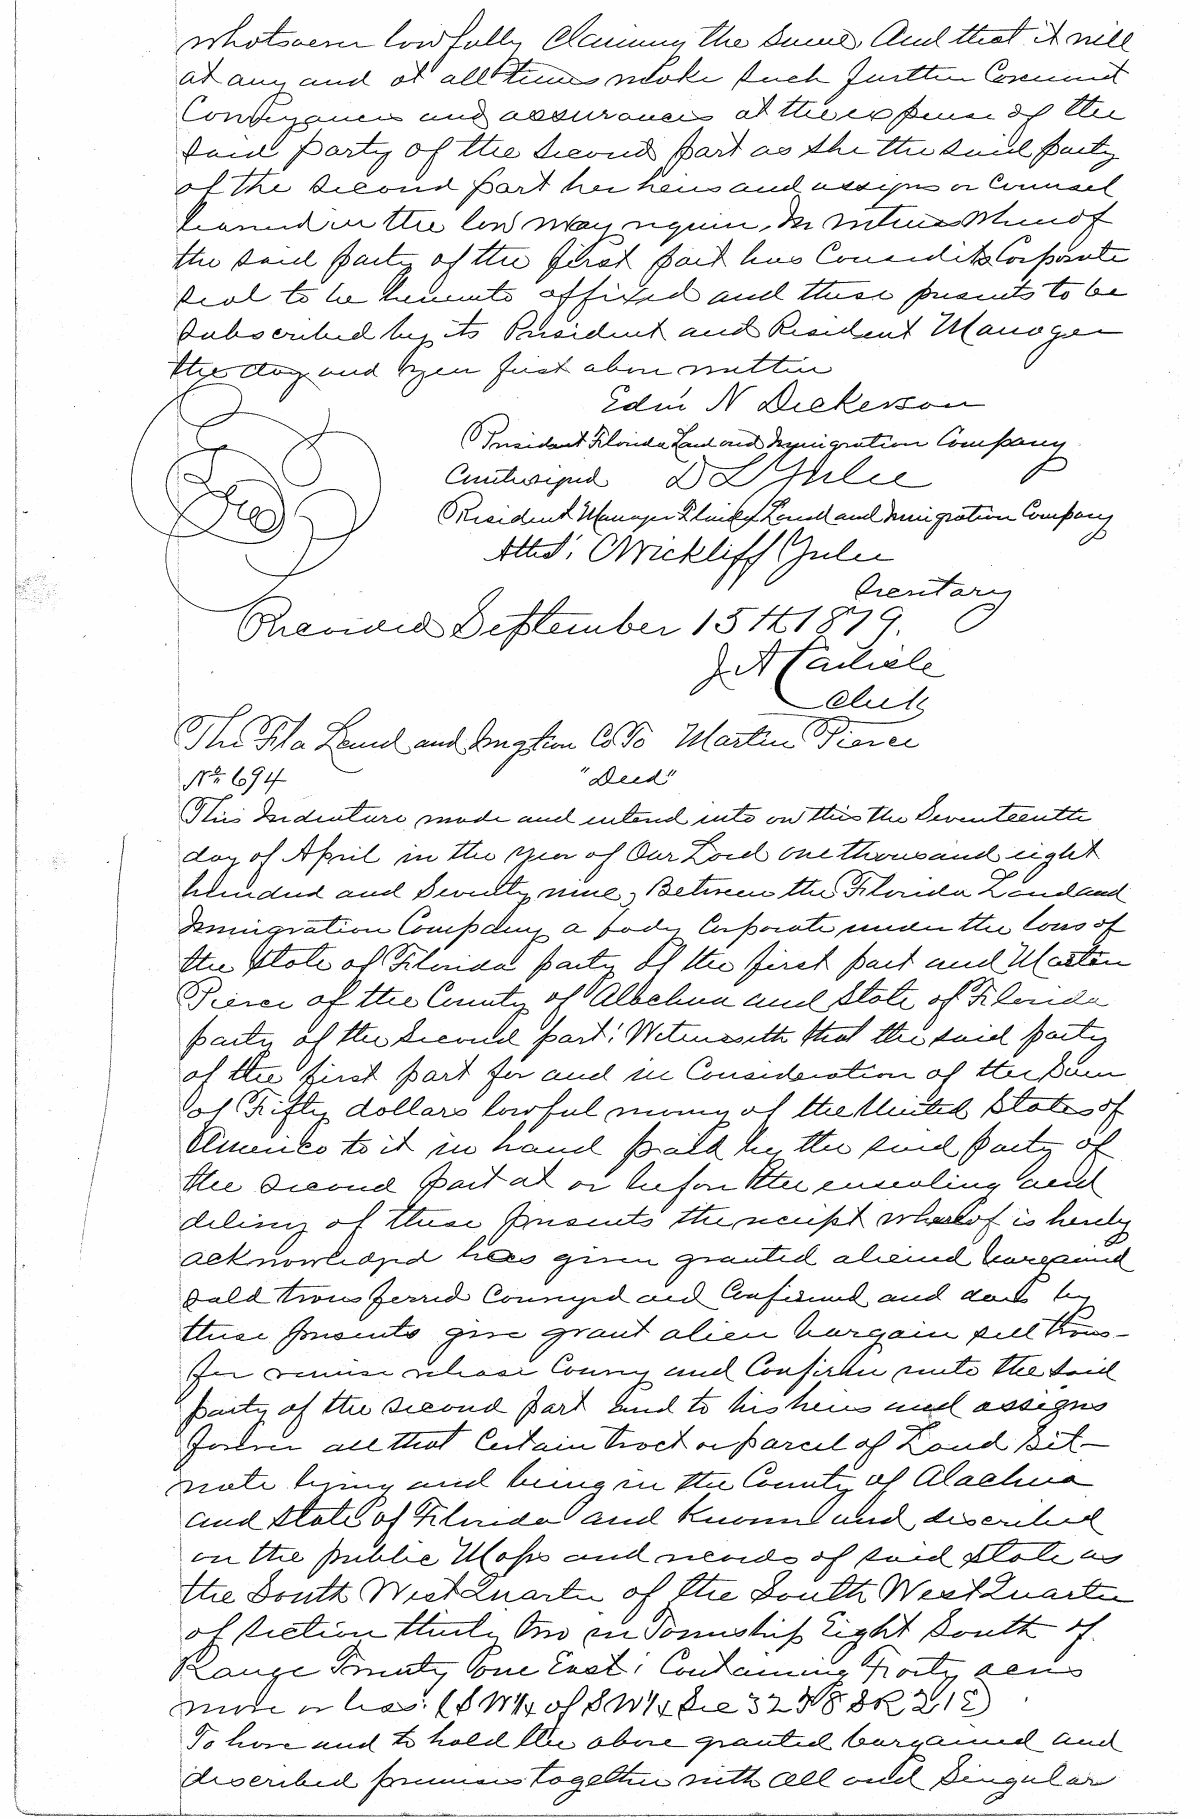 whotsoever lowfully Claiming the Same, And that it will
at any and at all times make such further Covenant
Conveyances and assurances at the expense of the
said party of the Second part as she the said party
of the second part her heirs and assigns or Counsel
learned in the low may require, In witness Whereof
the said party of the first part has Caused its Corporate
seal to be hereunto affixed and these presents to be
subscribed by its President and Resident Manager
the day and year first above written
Edw'd N Dickerson
President Florida Land and Immigration Company
Countersigned D L Yulee
Resident Manager Florida Land and Immigration Company
Attest; C Wickliff Yulee
Secretary
Received September 15th 1879.
J. A Carlisle
Clerk
The Fla Land and Imgtion Co To Martin Pierce
No 694 "Deed"
This Indenture made and entered into on this the Seventeenth
day of April in the year of Our Lord one thousand eight
hundred and Seventy nine, Between the Florida Land and
Immigration Company a body Corporate under the laws of
the State of Florida party of the first part and Martin
Pierce of the County of Alachua and State of Florida
party of the Second part; Witnesseth that the said party
of the first part for and in Consideration of the Sum
of Fifty dollars lowful money of the United States of
America to it in hand paid by the said party of
the second part at or before the ensealing and
delivery of these presents the receipt whereof is hereby
acknowledged has given granted aliened bargained
sold transferred Conveyed and Confirmed and does by
these presents give grant alien bargain sell trans-
fer remise release Convey and Confirm unto the said
party of the second part and to his heirs and assigns
forever all that Certain tract or parcel of Land Sit-
uate lying and being in the County of Alachua
and State of Florida and Known and described
on the public Maps and records of said State as
the South West Quarter of the South West Quarter
of Section thirty two in Township Eight South of
Range Twenty One East; Containing Forty acres
more or less. (S W 1/4 of S W 1/4 Sec 32 T 8 S R 21 E)
To have and to hold the above granted bargained and
described premises together with all and Singular